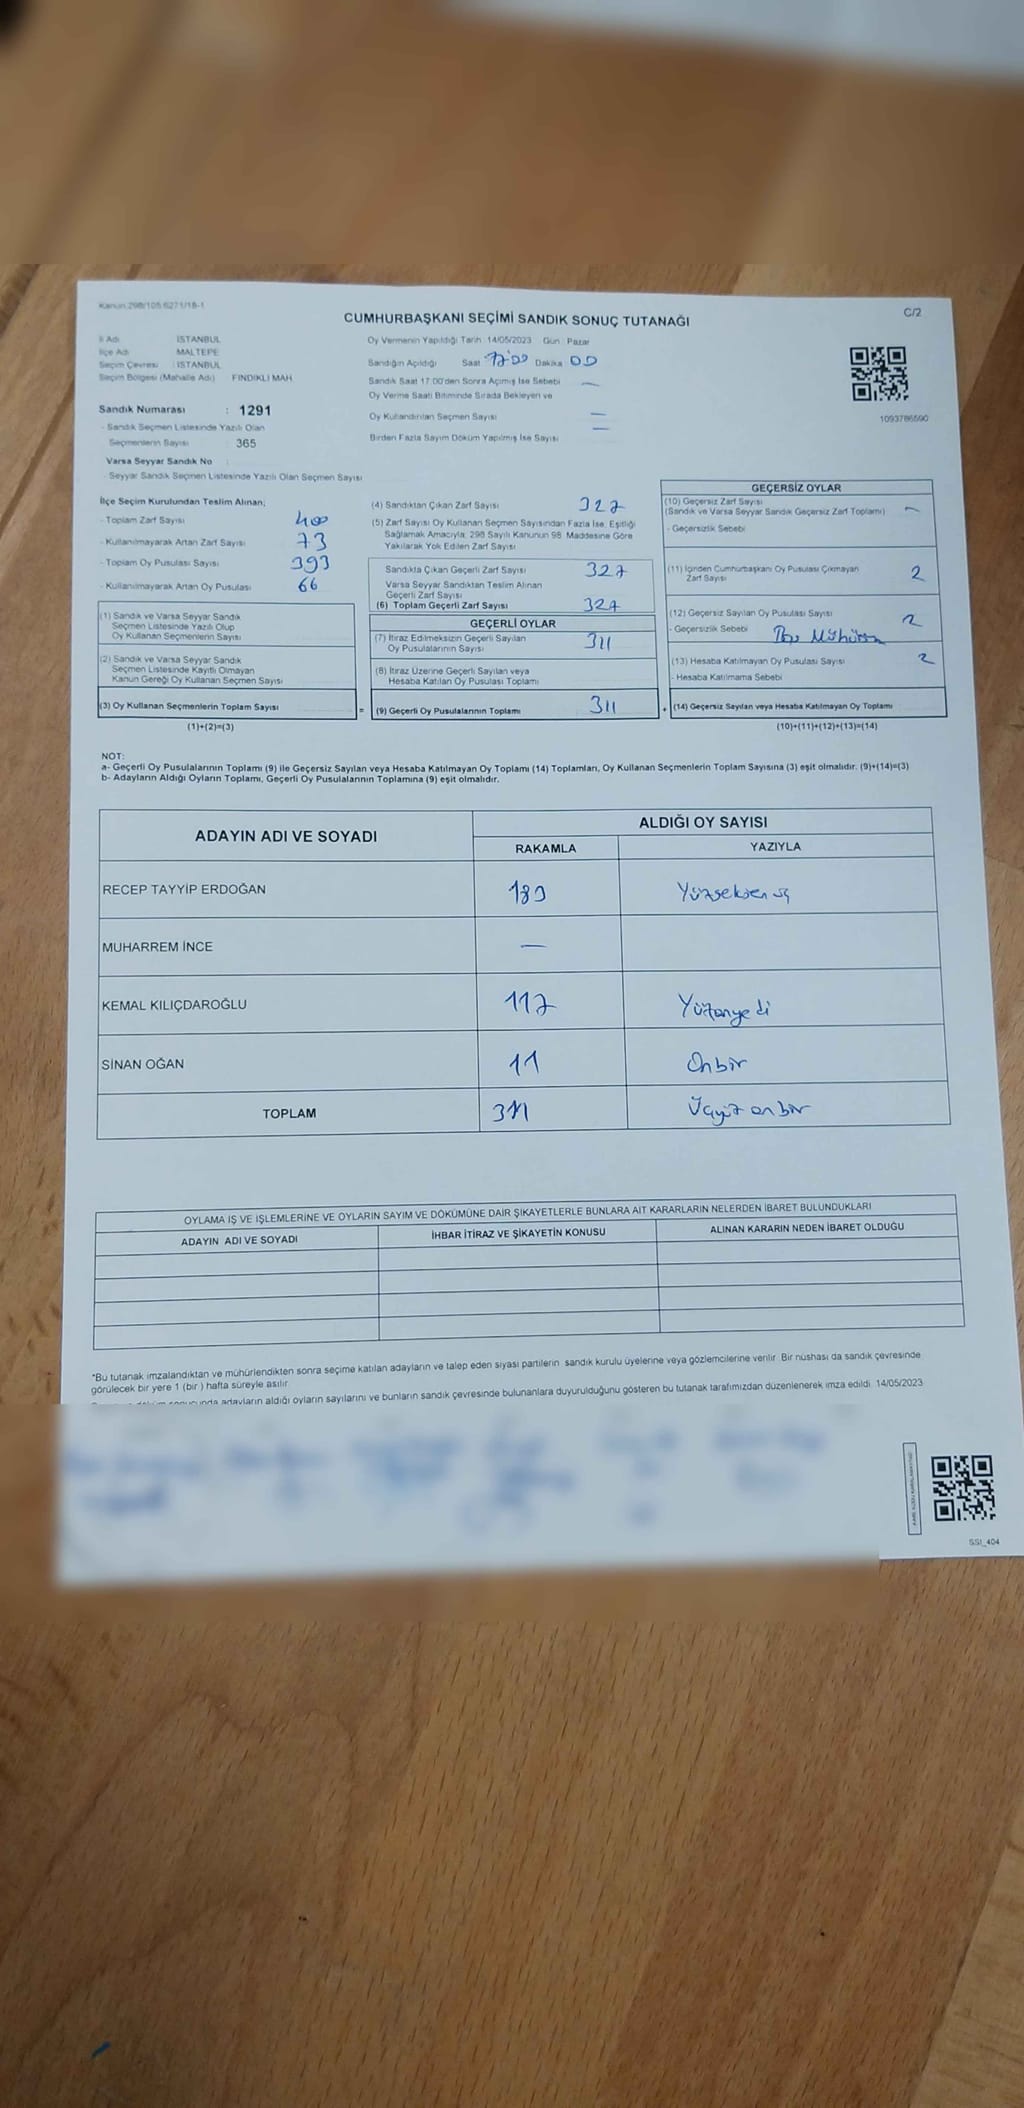 Kanun:298/105.6271/18-1
C/2
CUMHURBAŞKANI SEÇİMİ SANDIK SONUÇ TUTANAĞI
İl Adı : İSTANBUL
İlçe Adı : MALTEPE
Seçim Çevresi : İSTANBUL
Seçim Bölgesi (Mahalle Adı) FINDIKLI MAH
Sandık Numarası : 1291
- Sandık Seçmen Listesinde Yazılı Olan
Seçmenlerin Sayısı : 365
Varsa Seyyar Sandık No :
- Seyyar Sandık Seçmen Listesinde Yazılı Olan Seçmen Sayısı
Oy Vermenin Yapıldığı Tarih 14/05/2023 Gün : Pazar
Sandığın Açıldığı Saat 17:00 Dakika 00
Sandık Saat 17:00'den Sonra Açımış İse Sebebi —
Oy Verme Saati Bitiminde Sırada Bekleyen ve
Oy Kullandırılan Seçmen Sayısı =
Birden Fazla Sayım Döküm Yapılmış İse Sayısı
1093786590
İlçe Seçim Kurulundan Teslim Alınan;
- Toplam Zarf Sayısı 400
- Kullanılmayarak Artan Zarf Sayısı 73
- Toplam Oy Pusulası Sayısı 393
- Kullanılmayarak Artan Oy Pusulası 66
(1) Sandık ve Varsa Seyyar Sandık
Seçmen Listesinde Yazılı Olup
Oy Kullanan Seçmenlerin Sayısı
(2) Sandık ve Varsa Seyyar Sandık
Seçmen Listesinde Kayıtlı Olmayan
Kanun Gereği Oy Kullanan Seçmen Sayısı
(3) Oy Kullanan Seçmenlerin Toplam Sayısı
(1)+(2)=(3)
(4) Sandıktan Çıkan Zarf Sayısı 327
(5) Zarf Sayısı Oy Kullanan Seçmen Sayısından Fazla İse, Eşitliği
Sağlamak Amacıyla, 298 Sayılı Kanunun 98. Maddesine Göre
Yakılarak Yok Edilen Zarf Sayısı
Sandıkta Çıkan Geçerli Zarf Sayısı 327
Varsa Seyyar Sandıktan Teslim Alınan
Geçerli Zarf Sayısı
(6) Toplam Geçerli Zarf Sayısı 327
GEÇERLİ OYLAR
(7) İtiraz Edilmeksizin Geçerli Sayılan
Oy Pusulalarının Sayısı 311
(8) İtiraz Üzerine Geçerli Sayılan veya
Hesaba Katılan Oy Pusulası Toplamı
= (9) Geçerli Oy Pusulalarının Toplamı 311
GEÇERSİZ OYLAR
(10) Geçersiz Zarf Sayısı
(Sandık ve Varsa Seyyar Sandık Geçersiz Zarf Toplamı) —
- Geçersizlik Sebebi
(11) İçinden Cumhurbaşkanı Oy Pusulası Çıkmayan
Zarf Sayısı 2
(12) Geçersiz Sayılan Oy Pusulası Sayısı 2
- Geçersizlik Sebebi
(13) Hesaba Katılmayan Oy Pusulası Sayısı 2
- Hesaba Katılmama Sebebi
+ (14) Geçersiz Sayılan veya Hesaba Katılmayan Oy Toplamı
(10)+(11)+(12)+(13)=(14)
NOT:
a- Geçerli Oy Pusulalarının Toplamı (9) ile Geçersiz Sayılan veya Hesaba Katılmayan Oy Toplamı (14) Toplamları, Oy Kullanan Seçmenlerin Toplam Sayısına (3) eşit olmalıdır. (9)+(14)=(3)
b- Adayların Aldığı Oyların Toplamı, Geçerli Oy Pusulalarının Toplamına (9) eşit olmalıdır.
ADAYIN ADI VE SOYADI
ALDIĞI OY SAYISI
RAKAMLA YAZIYLA
RECEP TAYYİP ERDOĞAN 183 Yüzseksen üç
MUHARREM İNCE —
KEMAL KILIÇDAROĞLU 117 Yüzonyedi
SİNAN OĞAN 11 Onbir
TOPLAM 311 Üçyüz onbir
OYLAMA İŞ VE İŞLEMLERİNE VE OYLARIN SAYIM VE DÖKÜMÜNE DAİR ŞİKAYETLERLE BUNLARA AİT KARARLARIN NELERDEN İBARET BULUNDUKLARI
ADAYIN ADI VE SOYADI İHBAR İTİRAZ VE ŞİKAYETİN KONUSU ALINAN KARARIN NEDEN İBARET OLDUĞU
*Bu tutanak imzalandıktan ve mühürlendikten sonra seçime katılan adayların ve talep eden siyasi partilerin sandık kurulu üyelerine veya gözlemcilerine verilir. Bir nüshası da sandık çevresinde
görülecek bir yere 1 (bir ) hafta süreyle asılır.
adayların aldığı oyların sayılarını ve bunların sandık çevresinde bulunanlara duyurulduğunu gösteren bu tutanak tarafımızdan düzenlenerek imza edildi. 14/05/2023
SSI_404